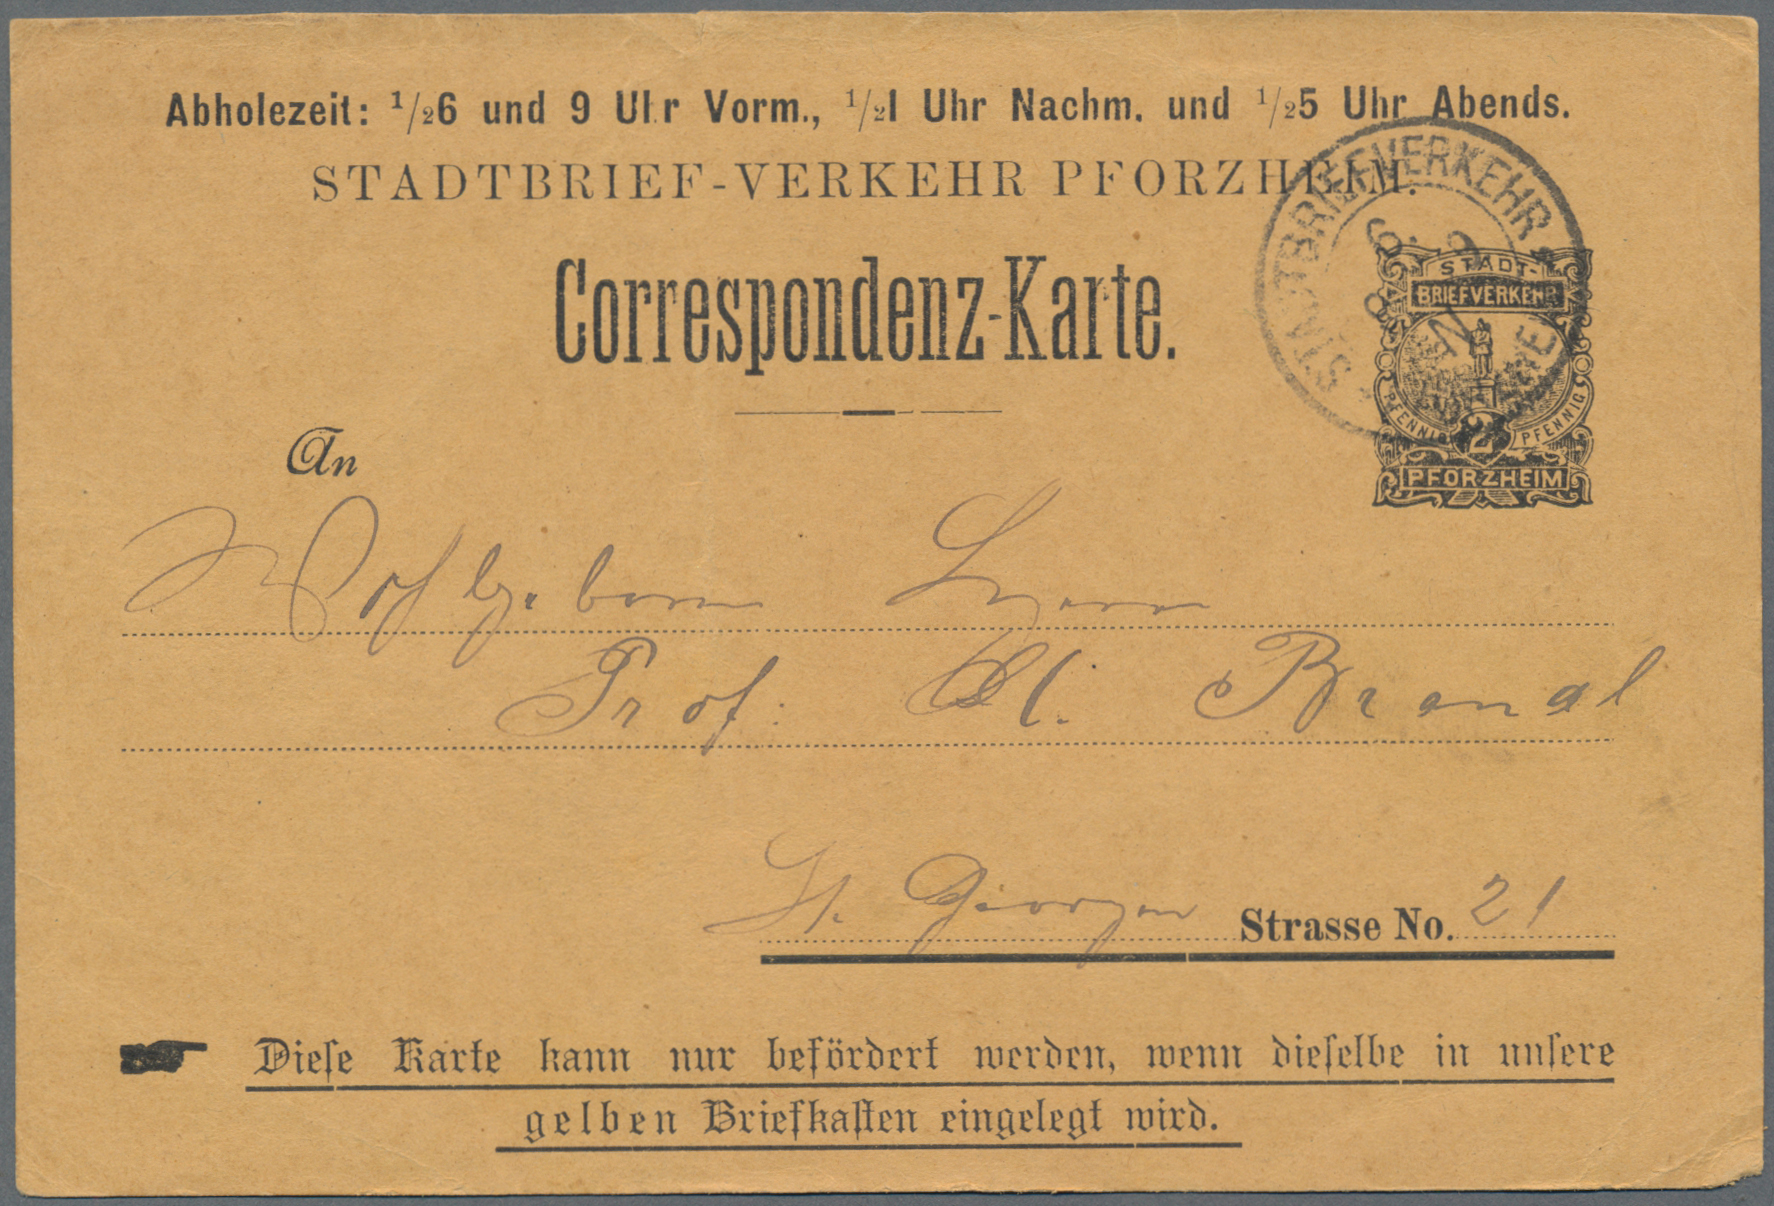 Abholezeit: 1/26 und 9 Uhr Vorm., 1/21 Uhr Nachm. und 1/25 Uhr Abends.
STADTBRIEF-VERKEHR PFORZHEIM.
STADTBRIEFVERKEHR
6. 9
8 N
STADT-
BRIEFVERKEHR
PFENNIG 2 PFENNIG
PFORZHEIM
Correspondenz-Karte.
An
Wohlgeboren Herrn
Prof. Brandl
St. Georgen Strasse No. 21
Diese Karte kann nur befördert werden, wenn dieselbe in unsere
gelben Briefkasten eingelegt wird.